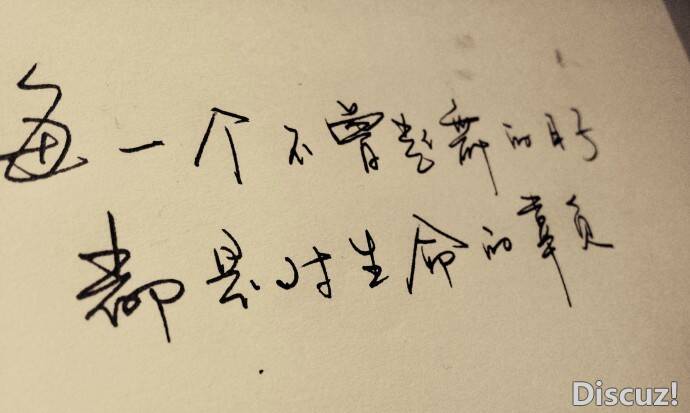 每一个不曾起舞的日子
都是对生命的辜负
Discuz!